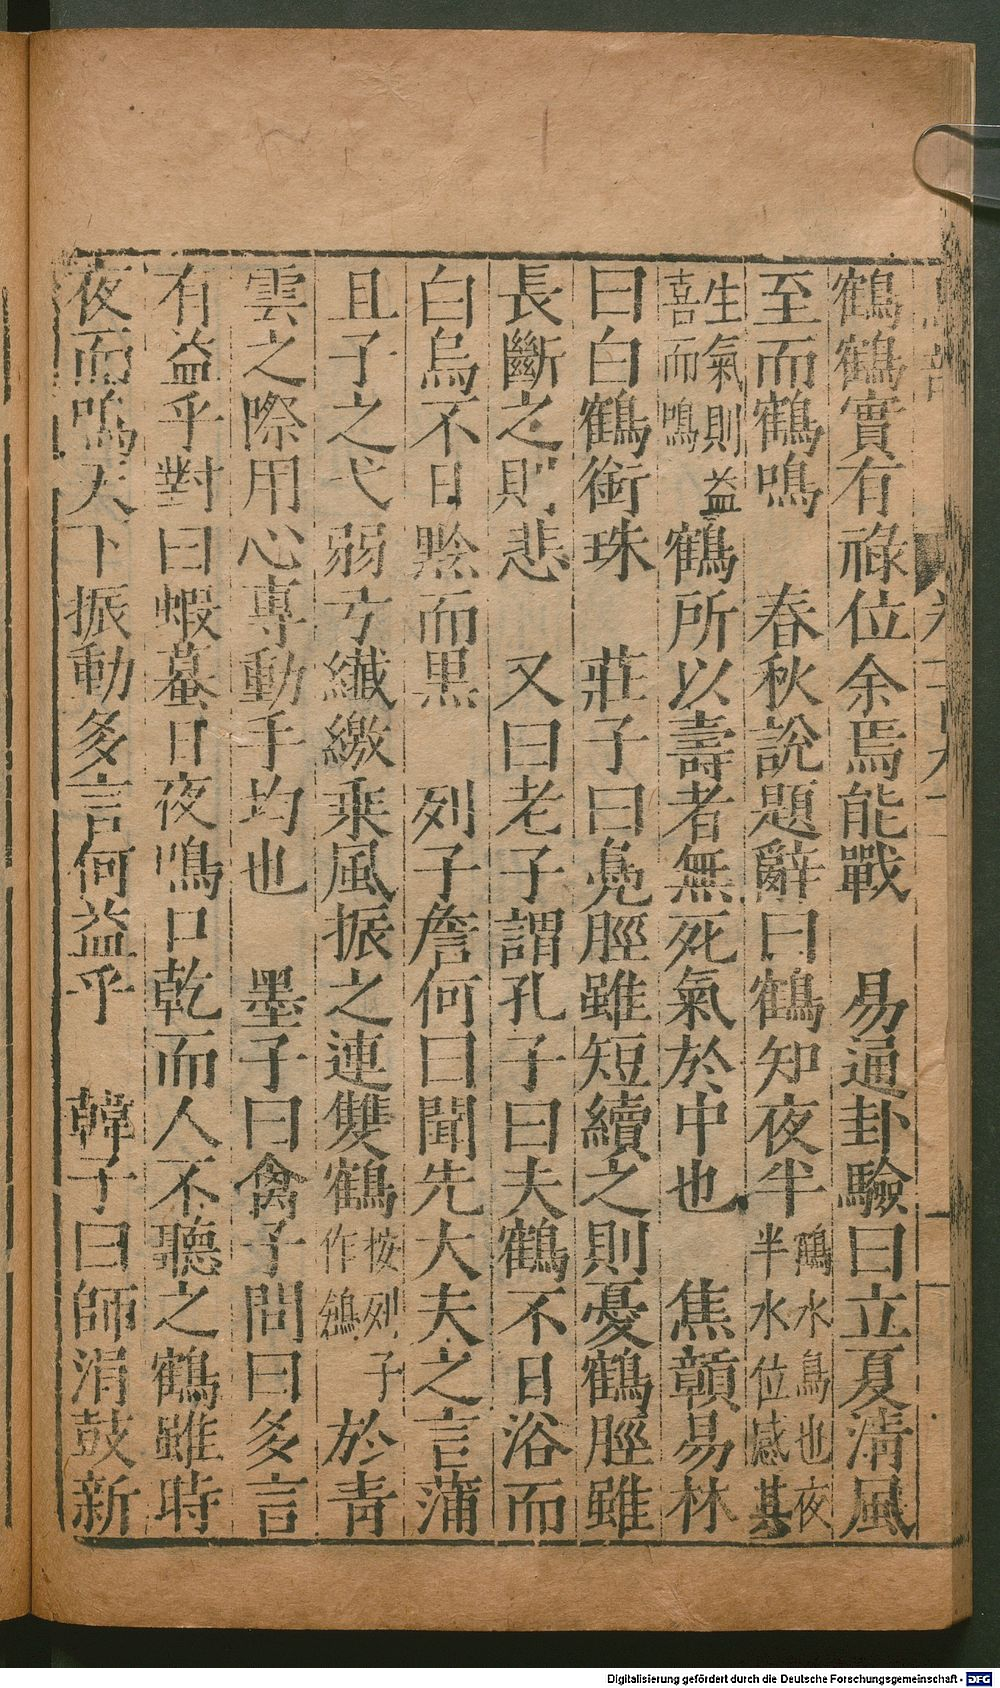 鶴鶴實有祿位余焉能戰　易通卦驗曰立夏清風
至而鶴鳴　春秋說題辭曰鶴知夜半鶴水鳥也夜半水位感其
生氣則益喜而鳴　鶴所以壽者無死氣於中也　焦贛易林
曰白鶴銜珠　莊子曰鳧脛雖短續之則憂鶴脛雖
長斷之則悲　又曰老子謂孔子曰夫鶴不日浴而
白烏不日黔而黑　列子詹何曰聞先大夫之言蒲
且子之弋弱弓纎繳乘風振之連雙鶴按列子作鶬於青
雲之際用心專動手均也　墨子曰禽子問曰多言
有益乎對曰蝦蟇日夜鳴口乾而人不聽之鶴雖時
夜而鳴天下振動多言何益乎　韓子曰師涓鼓新
Digitalisierung gefördert durch die Deutsche Forschungsgemeinschaft - DFG